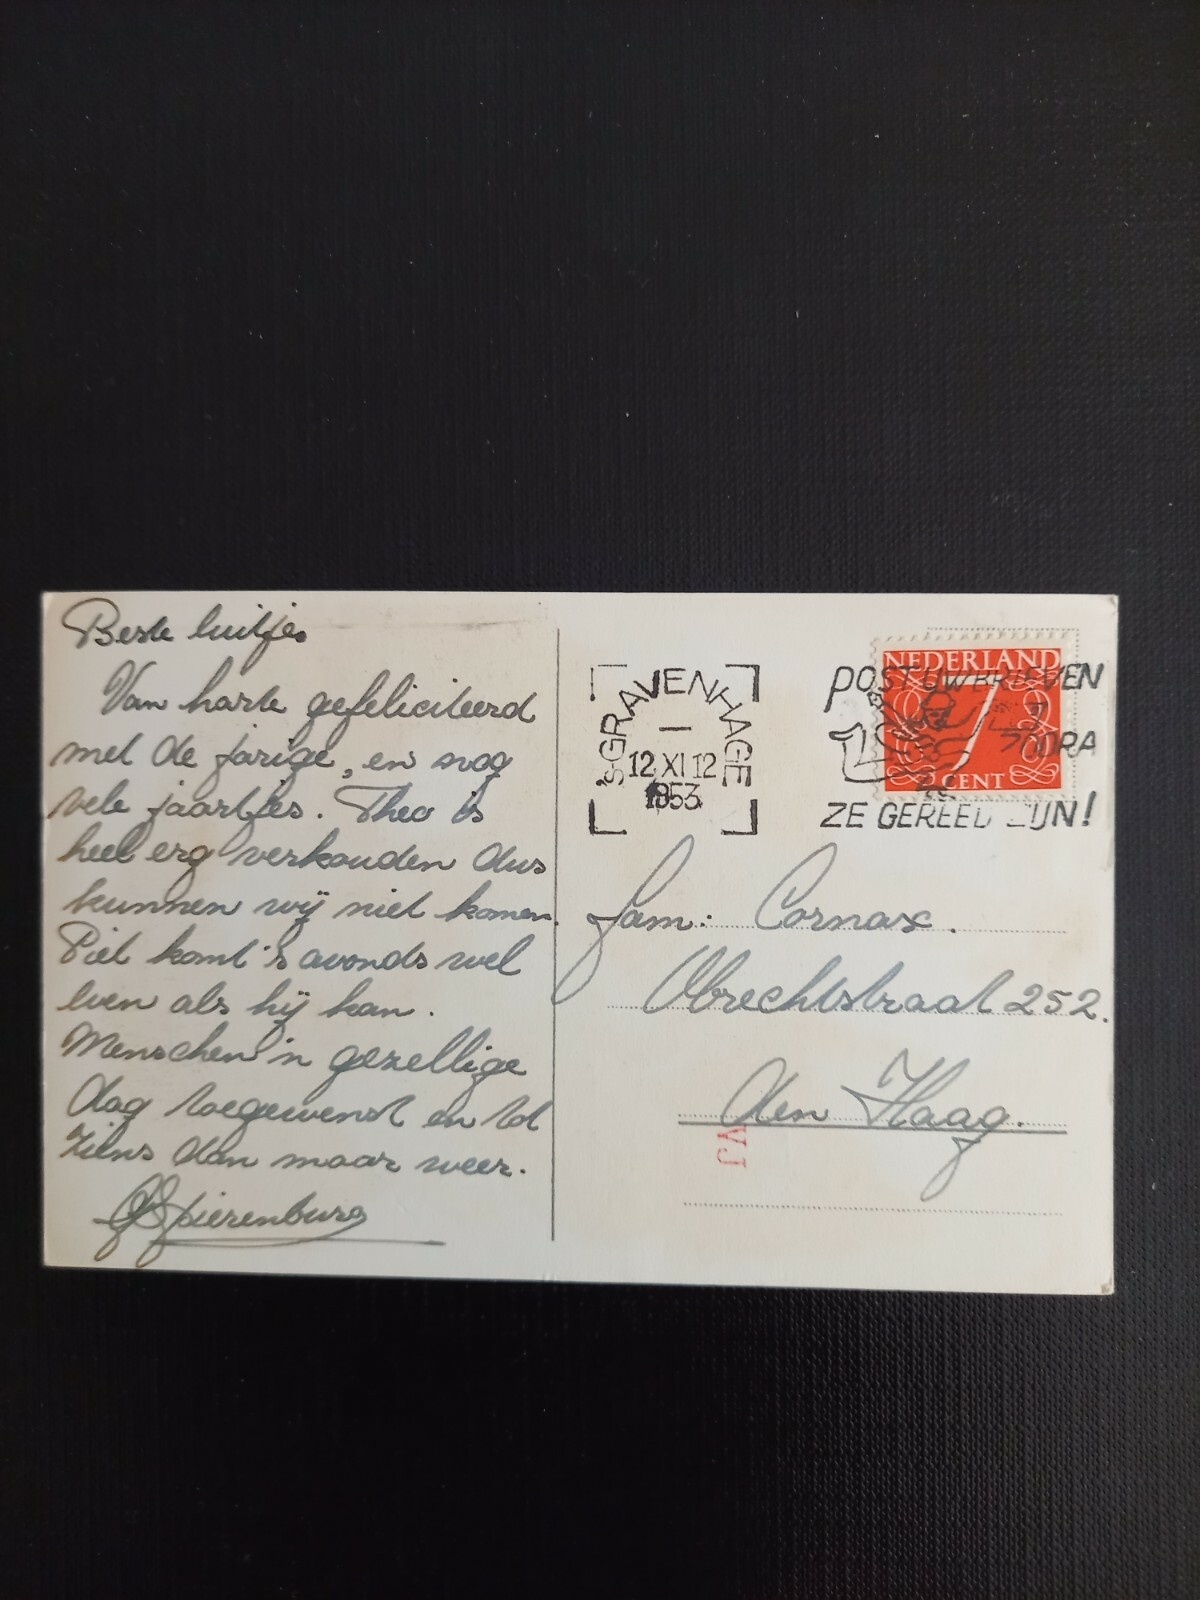 Beste luitjes
Van harte gefeliciteerd
met de jarige, en nog
vele jaartjes. Theo is
heel erg verkouden dus
kunnen wij niet komen.
Piet komt 's avonds wel
even als hij kan.
Menschen 'n gezellige
dag toegewenst en tot
ziens dan maar weer.
Spierenburg
's GRAVENHAGE
12 XI 12
1953
NEDERLAND
7
CENT
POST UW BRIEVEN
ZODRA
ZE GEREED ZIJN!
fam: Cornax.
Obrechtstraat 252.
den Haag.
VJ